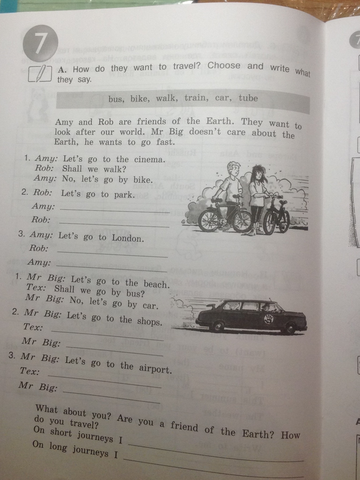 7
A. How do they want to travel? Choose and write what
they say.
bus, bike, walk, train, car, tube
Amy and Rob are friends of the Earth. They want to
look after our world. Mr Big doesn't care about the
Earth, he wants to go fast.
1. Amy: Let's go to the cinema.
Rob: Shall we walk?
Amy: No, let's go by bike.
2. Rob: Let's go to park.
Amy:
Rob:
3. Amy: Let's go to London.
Rob:
Amy:
1. Mr Big: Let's go to the beach.
Tex: Shall we go by bus?
Mr Big: No, let's go by car.
2. Mr Big: Let's go to the shops.
Tex:
Mr Big:
3. Mr Big: Let's go to the airport.
Tex:
Mr Big:
What about you? Are you a friend of the Earth? How
do you travel?
On short journeys I
On long journeys I